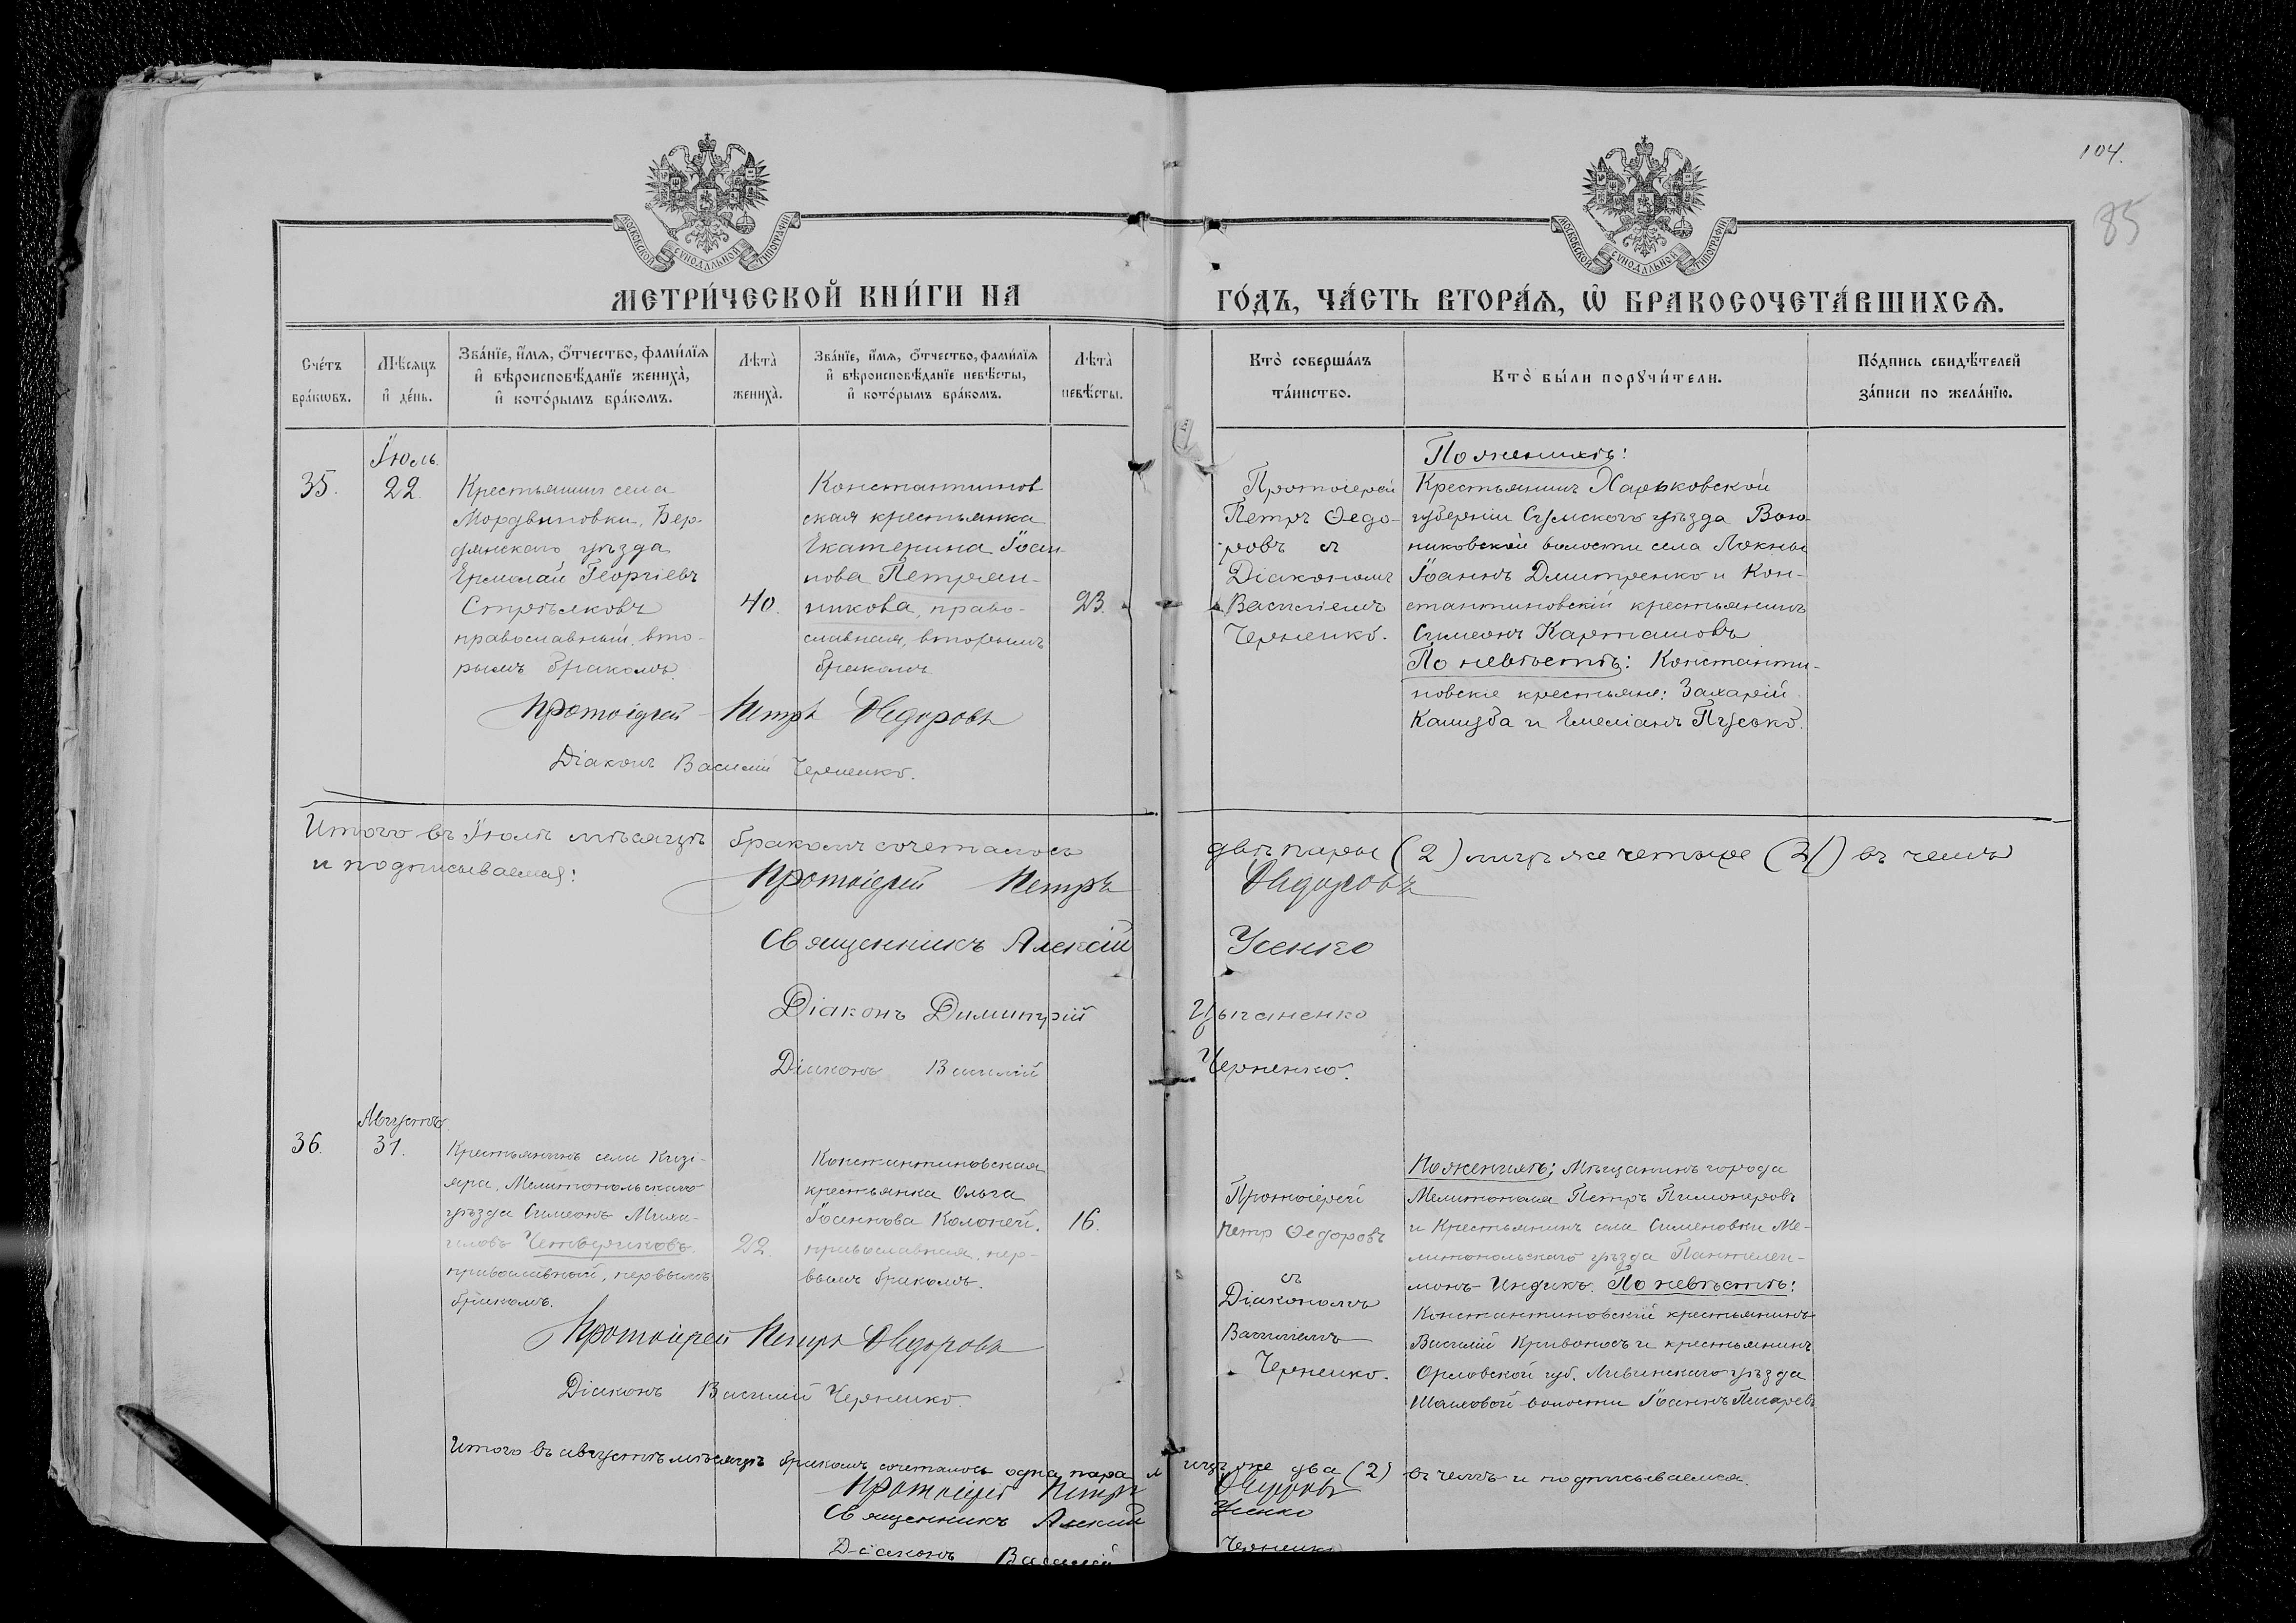 104.
85
МОСКОВСКОЙ СѴНОДАЛЬНОЙ ТИПОГРАФІИ
МОСКОВСКОЙ СѴНОДАЛЬНОЙ ТИПОГРАФІИ
МЕТРИ́ЧЕСКОЙ КНИ́ГИ НА
ГО́ДЪ, ЧА́СТЬ ВТОРА́Ѧ, Ѽ БРАКОСОЧЕТА́ВШИХСѦ.
Сче́тъ бра́кωвъ.
Мѣ́сяцъ и҆ де́нь.
Зва́нїе, и҆́мѧ, ѻ҆́тчество, фами́лїѧ
и҆ вѣроисповѣ́данїе жениха̀,
и҆ кото́рымъ бра́комъ.
Лѣта̀ жениха̀.
Зва́нїе, и҆́мѧ, ѻ҆́тчество, фами́лїѧ
и҆ вѣроисповѣ́данїе невѣ́сты,
и҆ кото́рымъ бра́комъ.
Лѣта̀ невѣ́сты.
Кто̀ соверша́лъ
та́инство.
Кто̀ бы́ли порꙋчи́тели.
По́дпись свидѣ́телей
за́писи по жела́нїю.
35.
Іюль
22.
Крестьянинъ села
Мордвиновки, Бер-
дянскаго уѣзда
Ермолай Георгіевъ
Стрѣлковъ
православный, вто-
рымъ бракомъ.
40.
Константинов
ская крестьянка
Екатерина Іоан
нова Петрян-
никова, право-
славная, вторымъ
бракомъ.
23.
Протоіерей
Петръ Ѳедо-
ровъ съ
Діакономъ
Василіемъ
Черненко.
По женихѣ:
Крестьянинъ Харьковской
губерніи Сумскаго уѣзда
никовской волости села Локни
Іоаннъ Дмитренко и Кон-
стантиновскій крестьянинъ
Симеонъ Карташовъ
По невѣстѣ: Константи-
новскіе крестьяне: Захарій
Кашуба и Емеліанъ
Протоіерей Петръ Ѳедоровъ
Діаконъ Василій Черненко.
Итого въ Іюлѣ мѣсяцѣ бракомъ сочеталось двѣ пары (2) лицъ же четыре (4) въ чемъ
и подписываемся:
Протоіерей Петръ Ѳедоровъ
Священникъ Алексій Усенко
Діаконъ Димитрій Цыганенко
Діаконъ Василій Черненко.
36.
Августъ
31.
Крестьянинъ села Кизі-
яра, Мелитопольскаго
уѣзда Симеонъ Миха-
иловъ Четвериковъ
православный, первымъ
бракомъ.
22.
Константиновская
крестьянка Ольга
Іоаннова Колоней,
православная, пер-
вымъ бракомъ.
16.
Протоіерей
Петр Ѳедоровъ
съ
Діакономъ
Василіемъ
Черненко.
По женихѣ: Мѣщанинъ города
Мелитополя Петръ Пимонеровъ
и Крестьянинъ села Сименовки Ме-
литопольскаго уѣзда Пантелеи-
монъ Индикъ. По невѣстѣ:
Константиновскій крестьянинъ
Василій Кривоносъ и крестьянинъ
Орловской губ. Ливинскаго уѣзда
волости Іоаннъ Писаревъ
Протоіерей Петръ Ѳедоровъ
Діаконъ Василій Черненко.
Итого въ августѣ мѣсяцѣ бракомъ сочеталось одна пара лицъ же два (2) въ чемъ и подписываемся.
Протоіерей Петръ Ѳедоровъ
Священникъ Алексій Усенко
Діаконъ Василій Черненко